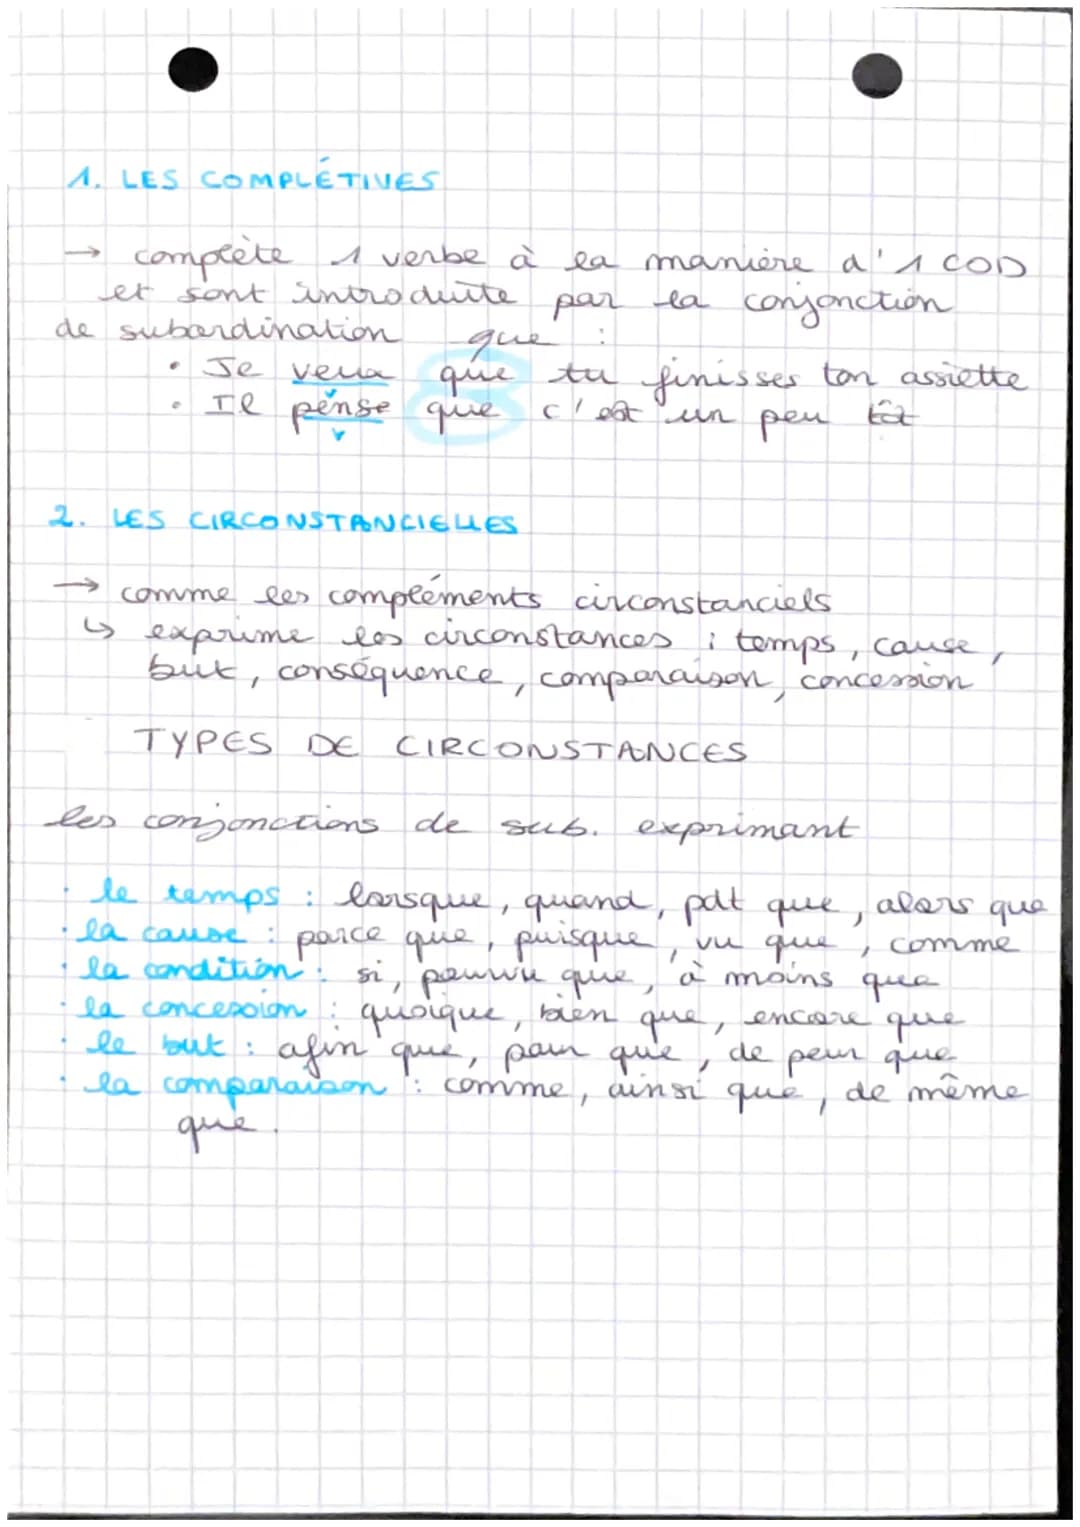 1. LES COMPLÉTIVES
→ complète 1 verbe à la manière d'1 COD
et sont introduite par la conjonction
de subordination que :
• Je veux que tu finisses ton assiette
v
• Il pense que c'est un peu tôt
v
2. LES CIRCONSTANCIELLES
→ comme les compléments circonstanciels
↳ exprime les circonstances : temps, cause,
but, conséquence, comparaison, concession
TYPES DE CIRCONSTANCES
les conjonctions de sub. exprimant
• le temps : lorsque, quand, pdt que, alors que
• la cause : parce que, puisque, vu que, comme
• la condition : si, pourvu que, à moins que
• la concession : quoique, bien que, encore que
• le but : afin que, pour que, de peur que
• la comparaison : comme, ainsi que, de même
que.